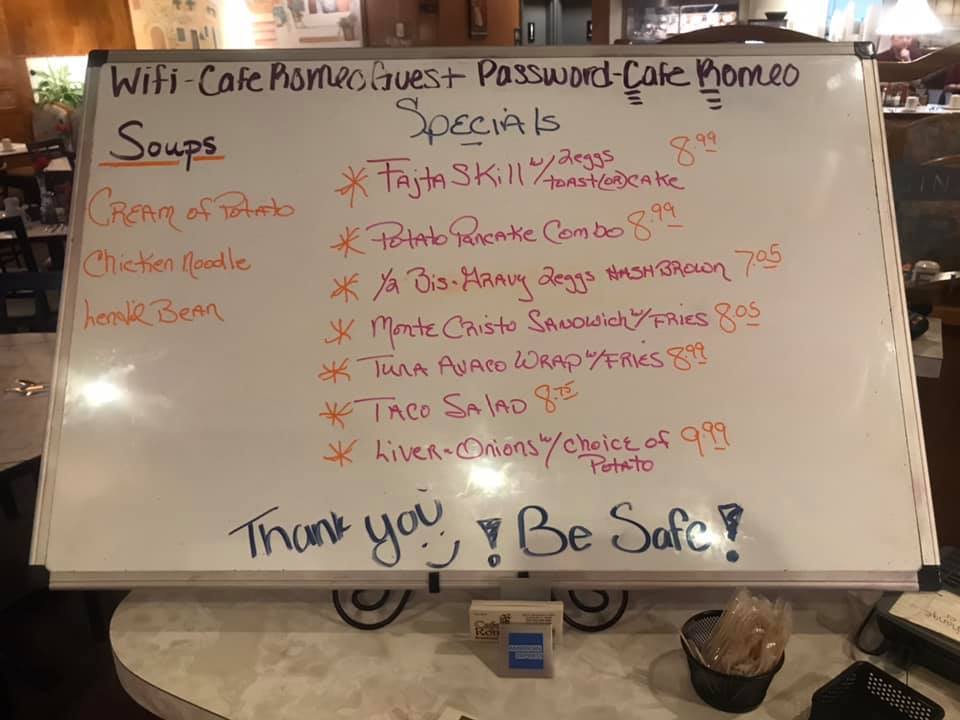 Wifi-Cafe Romeo Guest Password-Cafe Romeo
Specials
Soups
Cream of Potato
Chicken Noodle
Lentil Bean
* Fajta Skill w/ 2eggs toast(or)cake 8.99
* Potato Pancake Combo 8.99
* 1/2 Bis-Gravy 2eggs Hashbrown 7.05
* Monte Cristo Sandwich w/Fries 8.05
* Tuna Avaco Wrap w/Fries 8.99
* Taco Salad 8.75
* Liver-Onions w/choice of Potato 9.99
Thank you! Be Safe!
AMERICAN EXPRESS